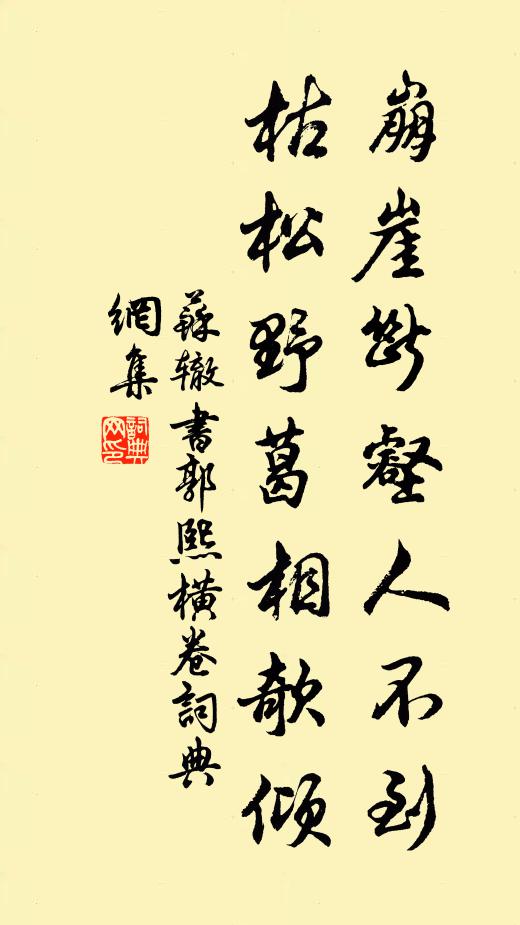 崩崖斷壑人不到
枯松野葛相欹傾
蘇辙書郭熙橫卷詞典
網集
詞典
网印